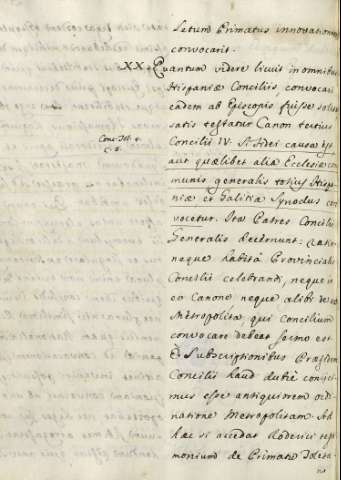 Setum Primatus innovationem
convocarit.
XX. Quantum videre licuit in omnibus
Hispaniæ Conciliis, convocari
eadem ab Episcopis fuisse solum
satis testatur Canon tertius
Conc. Tol. 4.
c. 3.
Concilii IV. Si fidei causa est
aut quælibet alia Ecclesiæ com
munis generalis totius Hispa
niæ et Galitiæ Synodus con
vocetur. Ita Patres Concilii
Generalis decernunt:
neque habita Provincialis
Concilii celebrandi, neque in
eo Canone neque alibi
Metropolita, qui concilium
convocare debeat sermo est.
Ex Subscriptionibus
Concilii haud dubie conijci
mus esse antiquiorem ordi
natione Metropolitam. Ad
hæc si accedat Roderici tes
monium de Primate Toleta